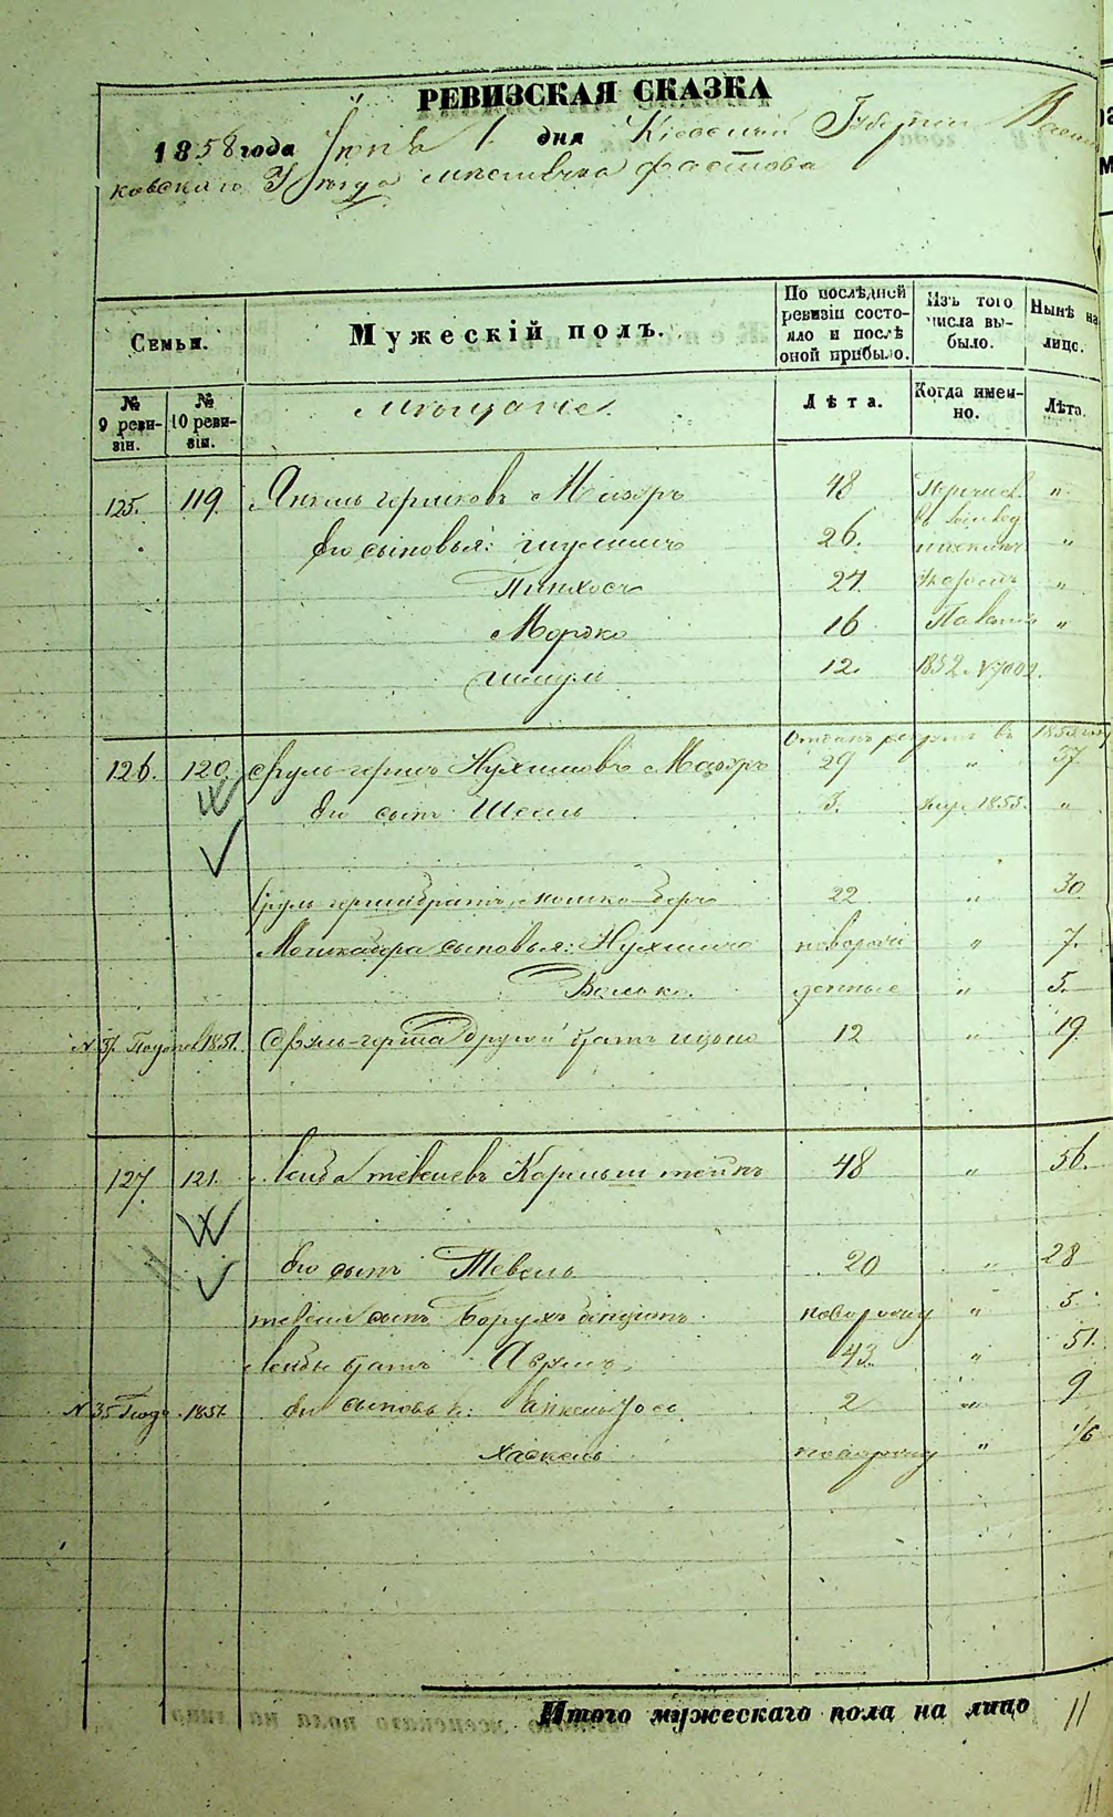 РЕВИЗСКАЯ СКАЗКА
1858 года Іюня 1 дня Кіевской Губерніи Василь
ковскаго Уѣзда мѣстечка Фастова
Семьи.
Мужескій полъ.
По послѣдней ревизіи состояло и послѣ оной прибыло.
Изъ того числа выбыло.
Нынѣ на лицо.
№ 9 ревизіи.
№ 10 ревизіи.
Мѣщане.
Лѣта.
Когда именно.
Лѣта.
125. 119. Янкель Гершковъ Мазоръ 48 Перечисл. "
Его сыновья: 26. "
Пинхосъ 24. "
Мордко 16 "
Шмуль 12. 1852.
Отданъ въ
126. 120. Сруль-Гершъ Нухимовъ Мазоръ 29 " 37
Его сынъ Шселъ 3. умр. 1855. "
Сруль Герша братъ Мошко-Беръ 22 " 30
Мошка Бера сыновья: Нухимъ новорож " 7.
Волько. денные " 5.
1851. Сруль-Герша другой братъ Ицко 12 " 19
127. 121. Лейба Тевелевъ Карпъштейнъ 48 " 56.
Его сынъ Тевель 20 " 28
Тевеля сынъ Борухъ новорожд " 5.
Лейбы братъ Аврумъ 43. " 51.
N 35 1851. Его сыновья: 2 " 9
Хаскель новорожд " 1/6
Итого мужескаго пола на лицо 11